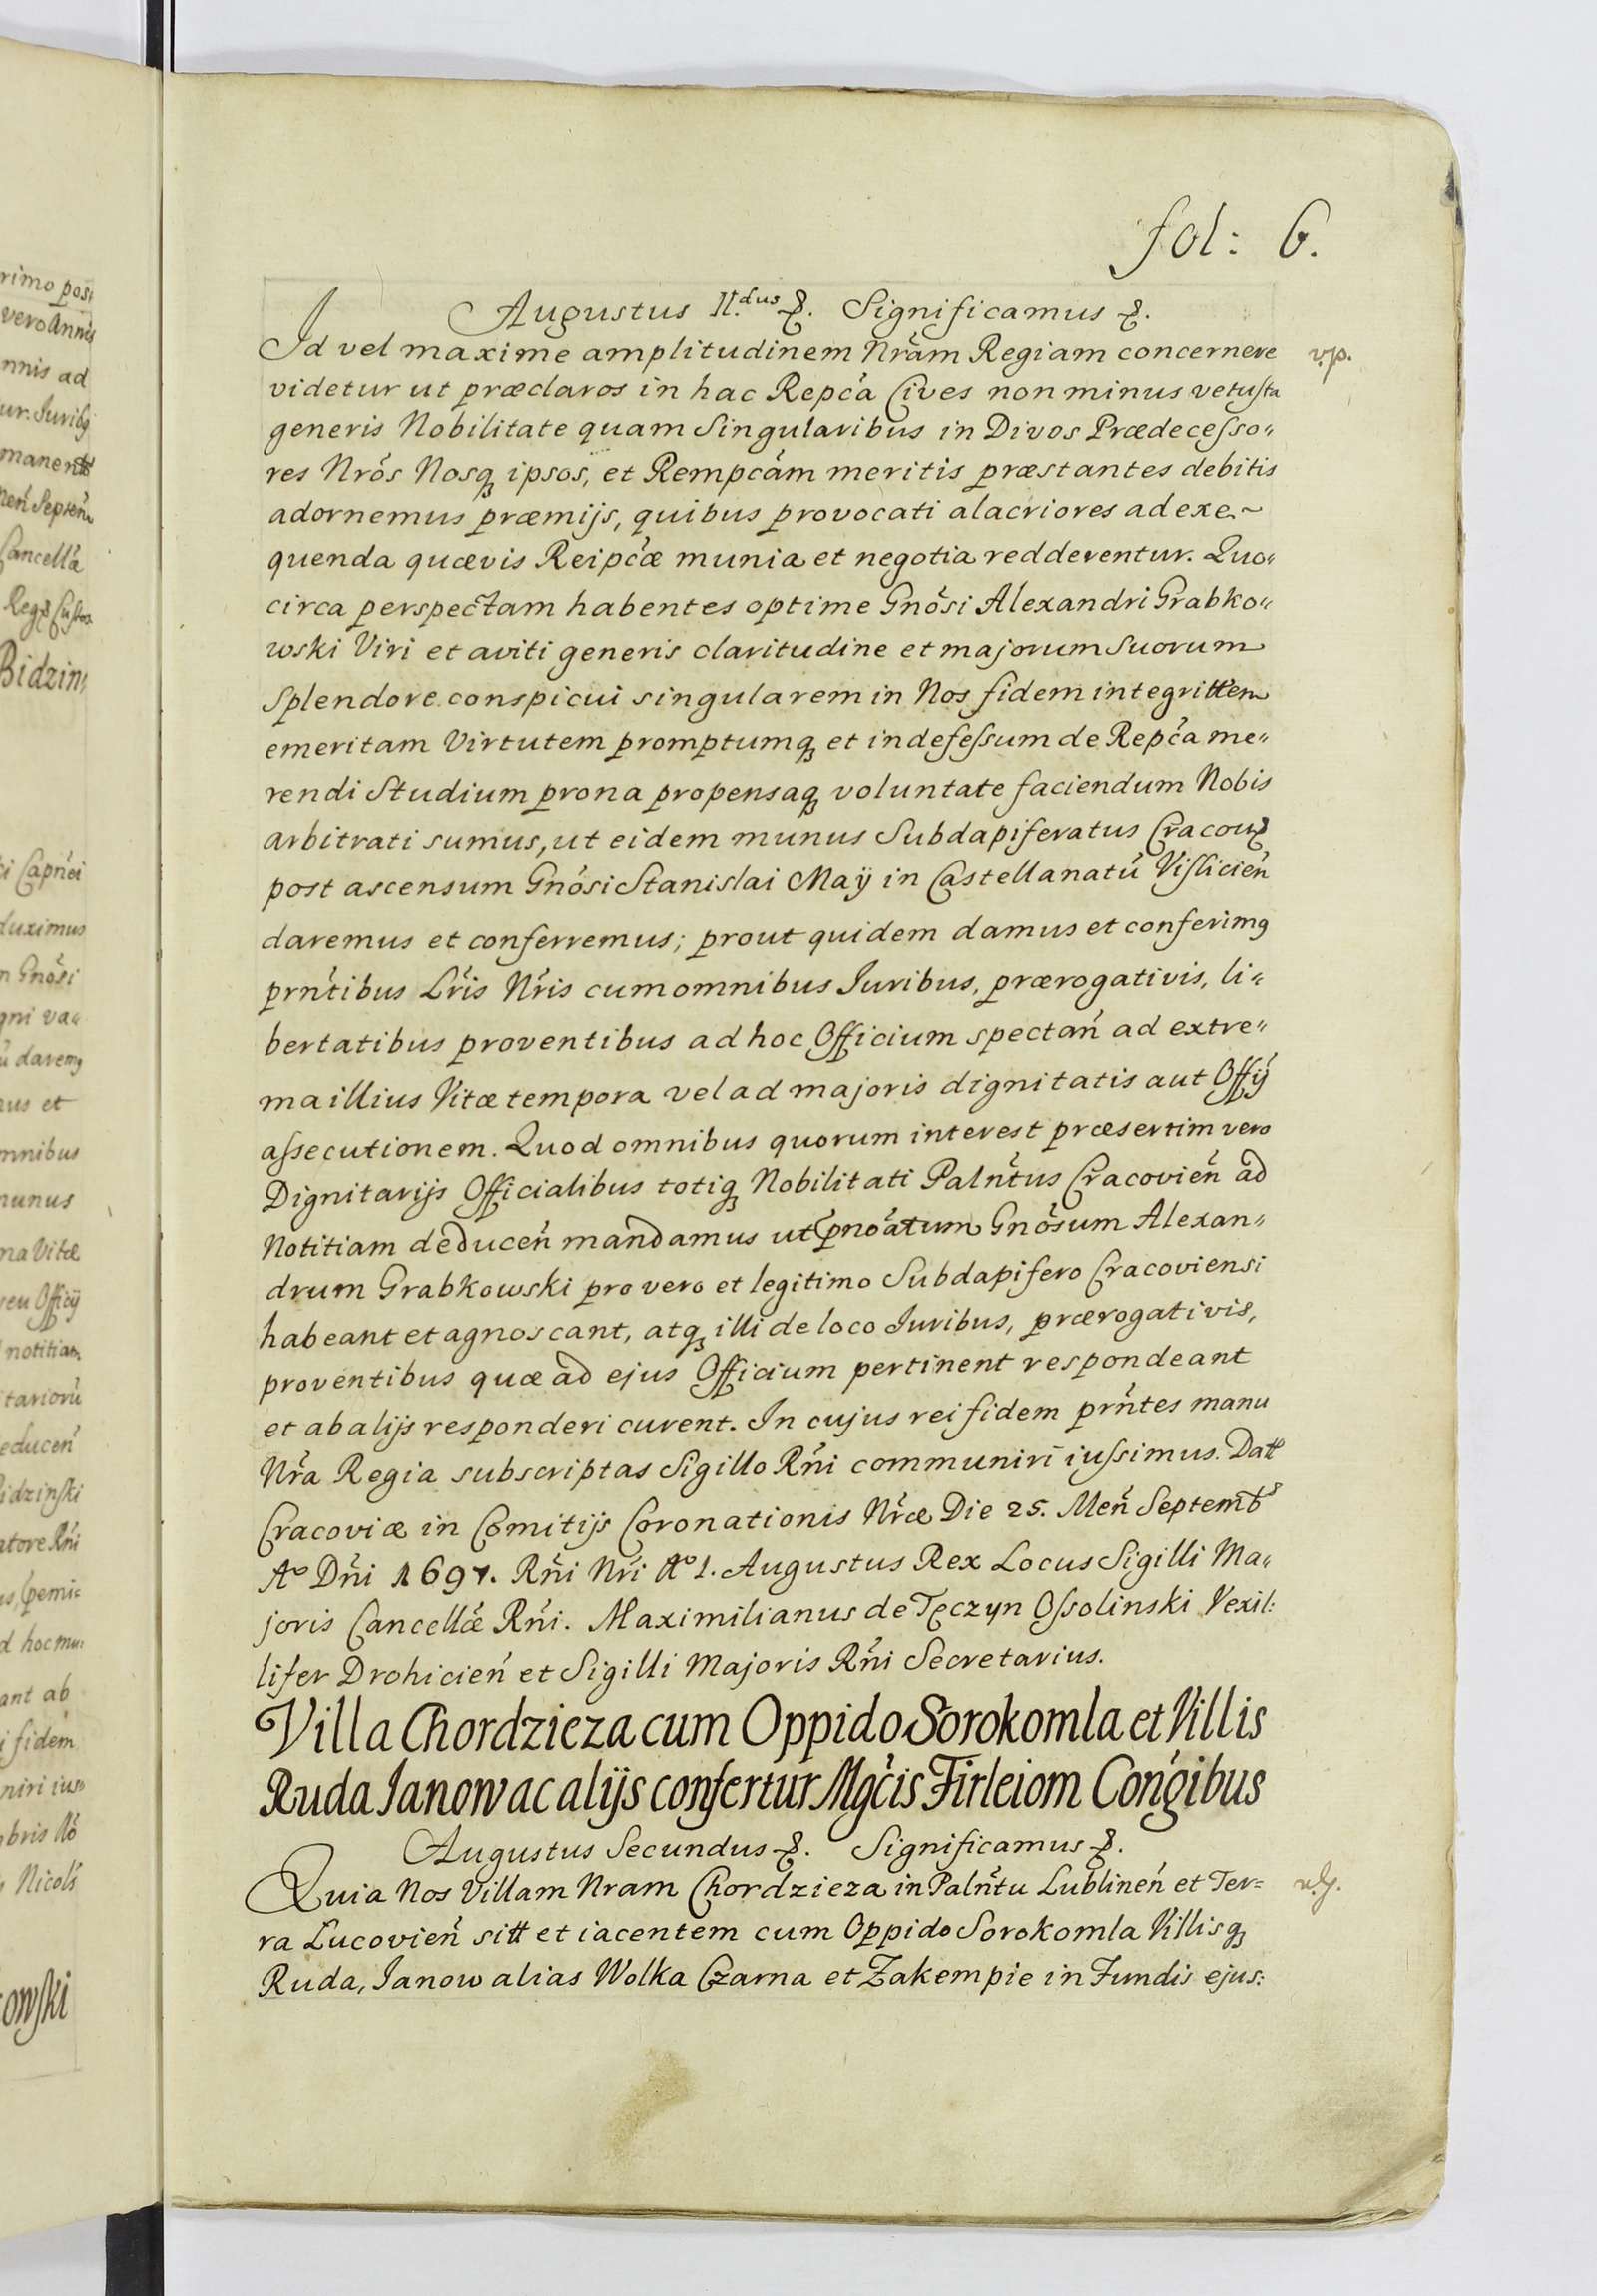 fol: 6.
Augustus II.dus &. Significamus &.
Id vel maxime amplitudinem Nrãm Regiam concernere
v.p.
videtur ut præclaros in hac Repcã Cives non minus vetusta
generis Nobilitate quam Singularibus in Divos Prædecesso„
res Nrõs Nosq ipsos, et Rempcãm meritis præstantes debitis
adornemus præmijs, quibus provocati alacriores ad exe~
quenda quævis Reipcæ munia et negotia redderentur. Quo„
circa perspectam habentes optime Gnõsi Alexandri Grabko„
wski Viri et aviti generis claritudine et majorum suorum
splendore conspicui singularem in Nos fidem integrittem
emeritam Virtutem promptumq et indefessum de Repcã me„
rendi Studium prona propensaq voluntate faciendum Nobis
arbitrati sumus, ut eidem munus Subdapiferatus Cracov
post ascensum Gnõsi Stanislai Maÿ in Castellanatũ Vislicień
daremus et conferremus; prout quidem damus et conferimq
prntibus Lris Nris cum omnibus Iuribus, prærogativis, li„
bertatibus proventibus ad hoc Officium spectań ad extre„
ma illius Vitæ tempora vel ad majoris dignitatis aut Offij
assecutionem. Quod omnibus quorum interest præsertim vero
Dignitarijs Officialibus totiq Nobilitati Palntus Cracovień ad
Notitiam deduceń mandamus ut pnoãtum Gnõsum Alexan„
drum Grabkowski pro vero et legitimo Subdapifero Cracoviensi
habeant et agnoscant, atq illi de loco Iuribus, prærogativis,
proventibus quæ ad ejus Officium pertinent respondeant
et ab alijs responderi curent. In cujus rei fidem prntes manu
Nrã Regia subscriptas Sigillo Rńi communiri iussimus. Datt
Cracoviæ in Comitijs Coronationis Nræ Die 25. Meń Septemb
Aº Dńi 1697. Rńi Nri Aº 1. Augustus Rex Locus Sigilli Ma„
joris Cancellæ Rńi. Maximilianus de Tęczyn Ossolinski Vexil:
lifer Drohicień et Sigilli Majoris Rńi Secretarius.
Villa Chordzieza cum Oppido Sorokomla et Villis
Ruda Ianow ac alijs confertur Mgcis Firleiom Congibus
Augustus Secundus &. Significamus &.
Quia Nos Villam Nram Chordzieza in Palntu Lublineń et Ter=
ra Lucovień sitt et iacentem cum Oppido Sorokomla Villisq
Ruda, Ianow alias Wolka Czarna et Zakempie in Fundis ejus: